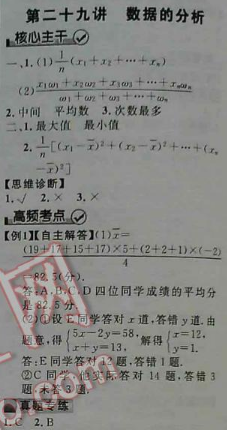 第二十九讲 数据的分析
核心主干
一、1.(1)1/n(x₁+x₂+…+xₙ)
(2)(x₁ω₁+x₂ω₂+x₃ω₃+…+xₙωₙ)/(ω₁+ω₂+ω₃+…+ωₙ)
2.中间 平均数 3.次数最多
二、1.最大值 最小值
2.1/n[(x₁-x̄)²+(x₂-x̄)²+…+(xₙ
-x̄)²]
【思维诊断】
1.√ 2.× 3.×
高频考点
【例1】【自主解答】(1)x̄=
((19+17+15+17)×5+(2+2+1)×(-2))/4
=82.5(分).
答:A,B,C,D四位同学成绩的平均分
是82.5分.
(2)①设E同学答对x道,答错y道.由
题意,得{5x-2y=58, x+y=13. 解得{x=12, y=1.
答:E同学答对12题,答错1题.
②C同学 实际答对14题,答错3
题,未答3题.
真题专练
1.C 2.B